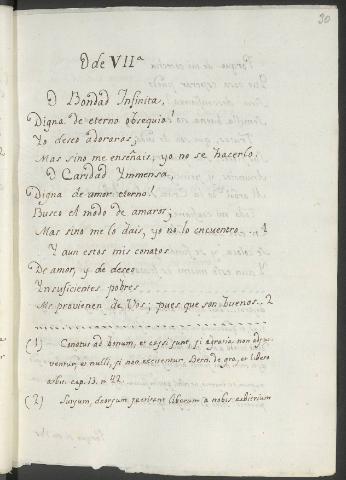 30
Ode VIIª
O Bondad Infinita,
Digna de eterno obsequio!
Yo deseo adoraros;
Mas sino me enseñais, yo no se hacerlo.
O Caridad Ymmensa,
Digna de amor eterno!
Busco el modo de amaros;
Mas sino me lo dais, yo no lo encuentro...1
Y aun estos mis conatos
De amor, y de deseo
Ynsuficientes pobres
Me provienen de Vos; pues que son buenos..2
(1) Conatus ad bonum, et cassi sunt, si a gratia non adju-
ventur, et nulli, si non excitentur. Bern. de gra. et libero
arbit. cap. 13. n. 42.
(2) Sursum, deorsum
liberum a nobis arbitrium